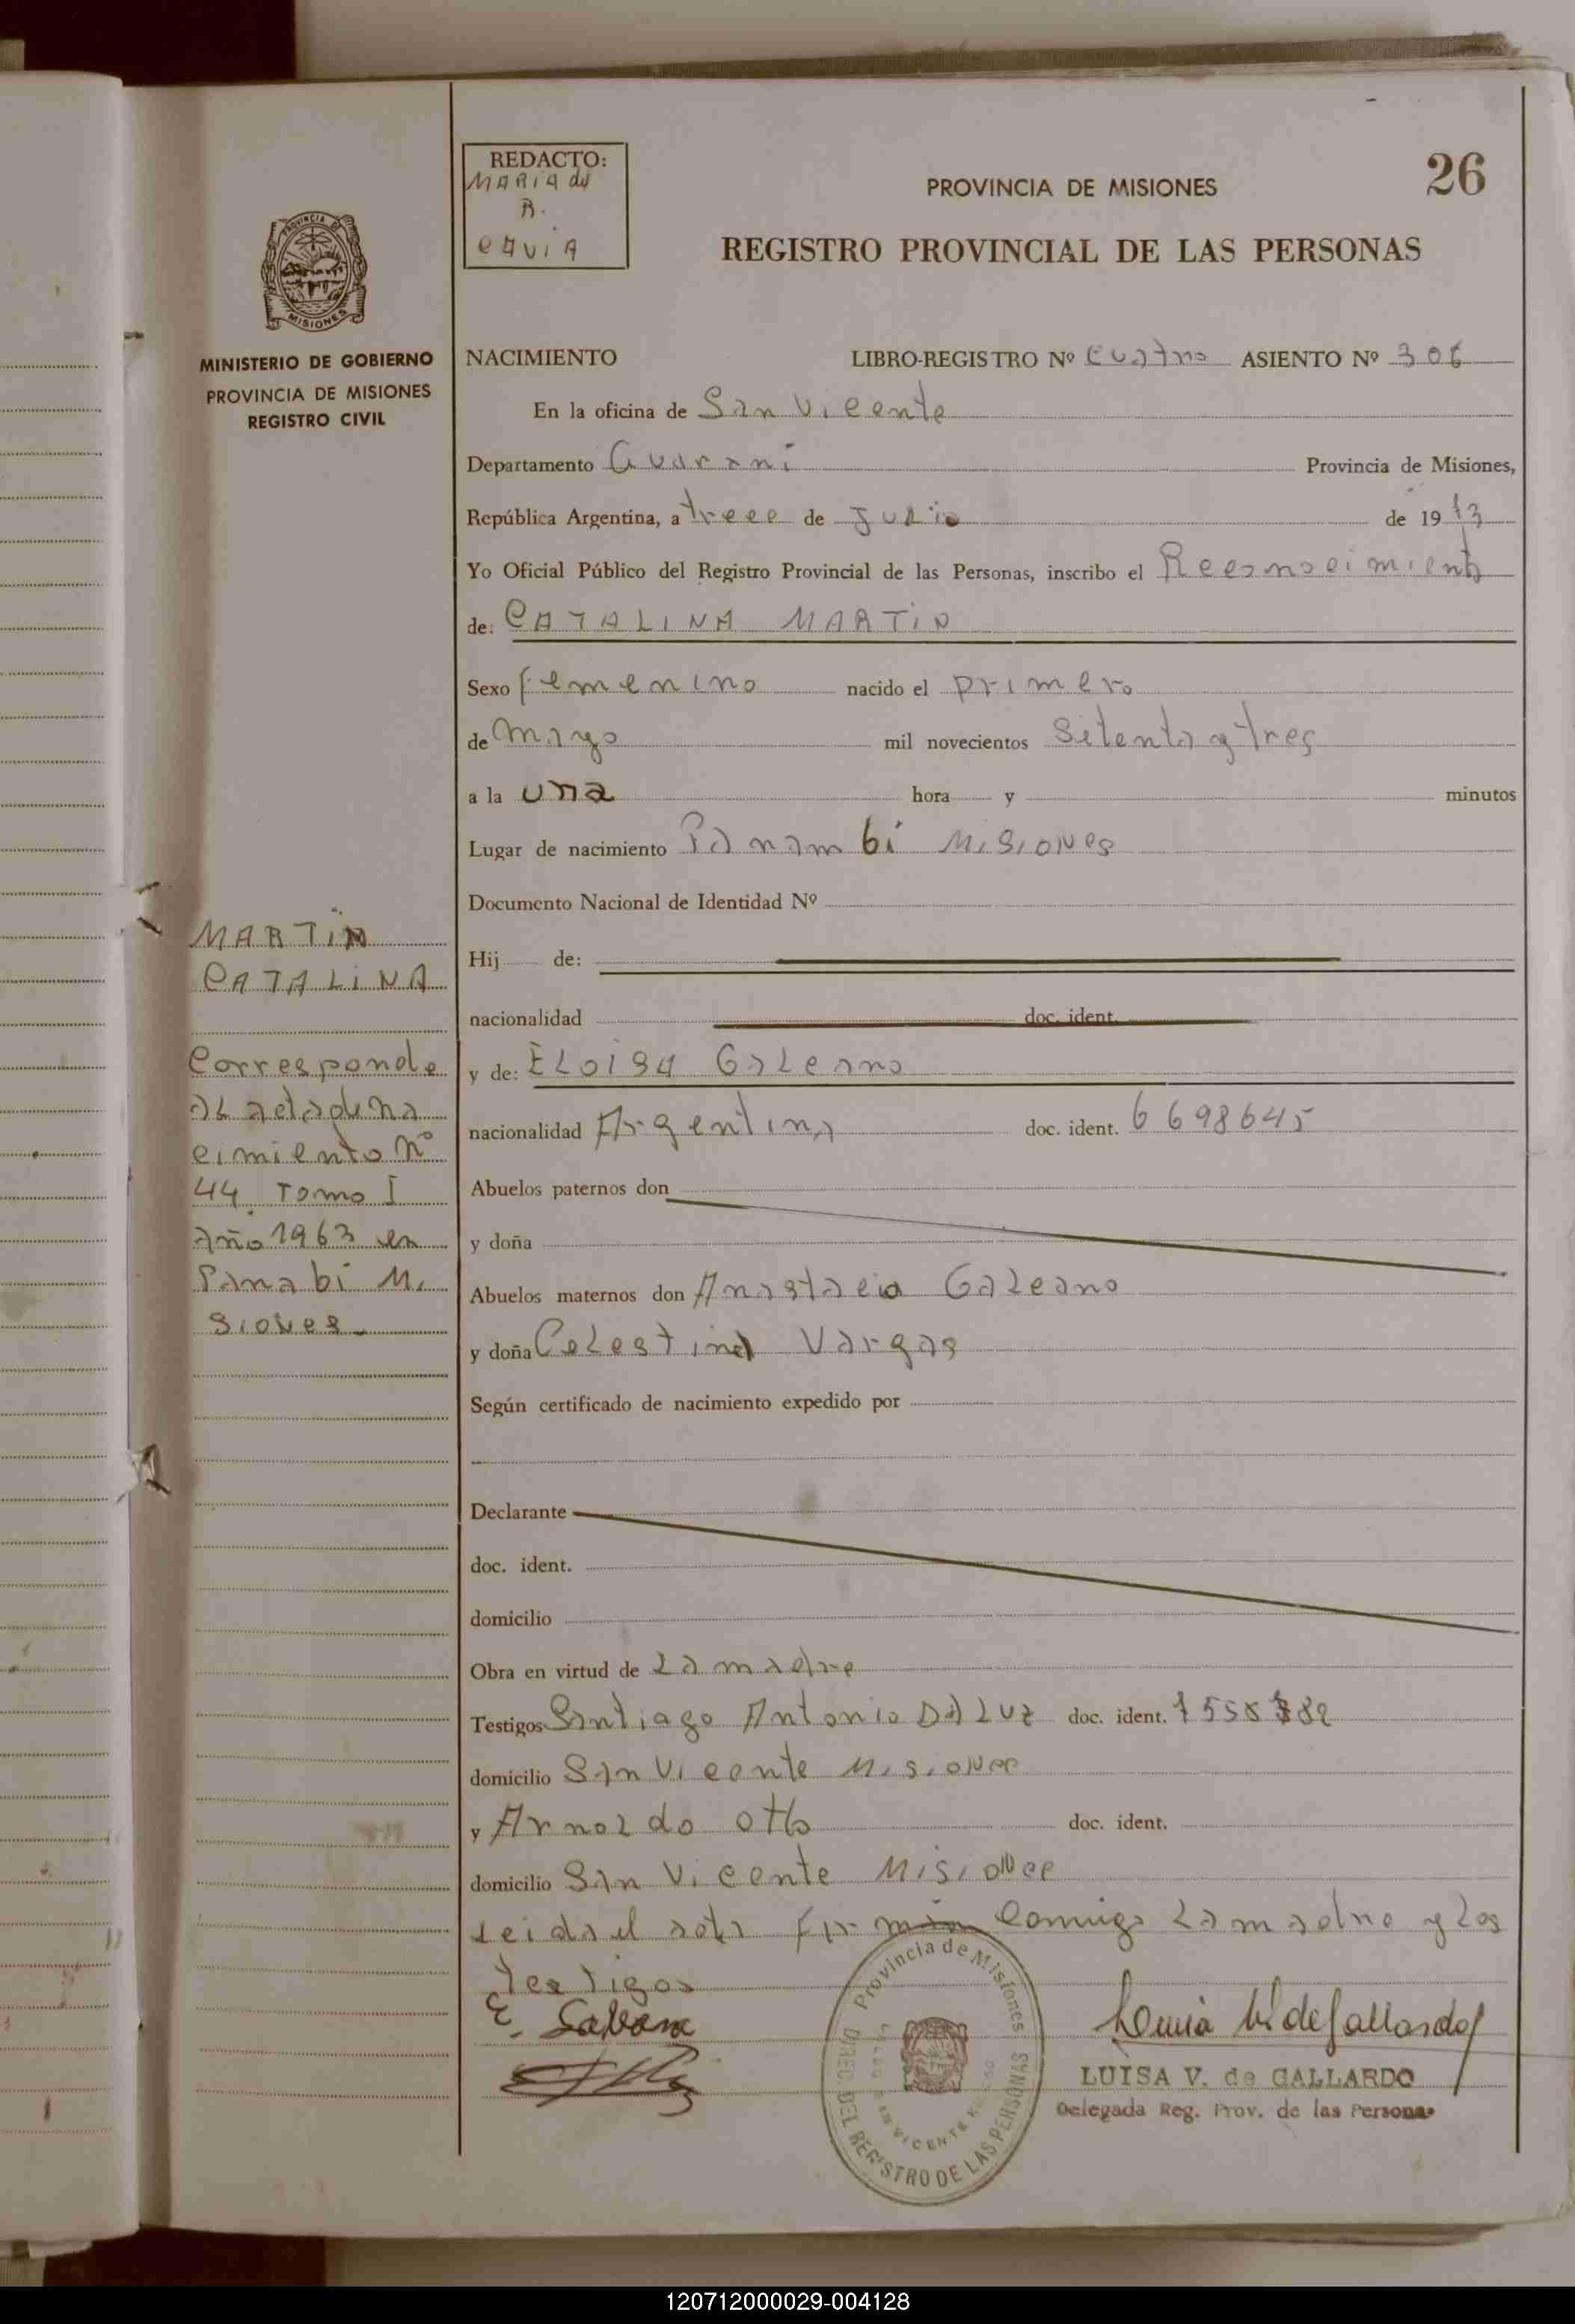 26
REDACTO:
MARIA del
R.
CAVIA
PROVINCIA DE MISIONES
REGISTRO PROVINCIAL DE LAS PERSONAS
PROVINCIA DE
MISIONES
MINISTERIO DE GOBIERNO
PROVINCIA DE MISIONES
REGISTRO CIVIL
NACIMIENTO LIBRO-REGISTRO Nº Cuatro ASIENTO Nº 306
En la oficina de San Vicente
Departamento Guarani Provincia de Misiones,
República Argentina, a trece de Julio de 1973
Yo Oficial Público del Registro Provincial de las Personas, inscribo el Reconocimiento
de: CATALINA MARTIN
Sexo femenino nacido el primero
de mayo mil novecientos setenta y tres
a la una hora y minutos
Lugar de nacimiento Panambi Misiones
Documento Nacional de Identidad Nº
Hij de:
nacionalidad doc. ident.
y de: ELOISA Galeano
nacionalidad Argentina doc. ident. 6698645
Abuelos paternos don
y doña
Abuelos maternos don Anastacio Galeano
y doña Celestina Vargas
Según certificado de nacimiento expedido por
Declarante
doc. ident.
domicilio
Obra en virtud de La madre
Testigos Santiago Antonio Da Luz doc. ident.
domicilio San Vicente Misiones
y Arnoldo Otto doc. ident.
domicilio San Vicente Misiones
Leida el acta firman Conmigo La madre y Los
testigos
MARTIN
CATALINA
Corresponde
al acta de na
cimiento Nº
44 Tomo I
año 1963 en
Panabi Mi
siones.
Provincia de Misiones
DIREC. DEL REGISTRO DE LAS PERSONAS
LUISA V. de GALLARDO
Delegada Reg. Prov. de las Personas
120712000029-004128